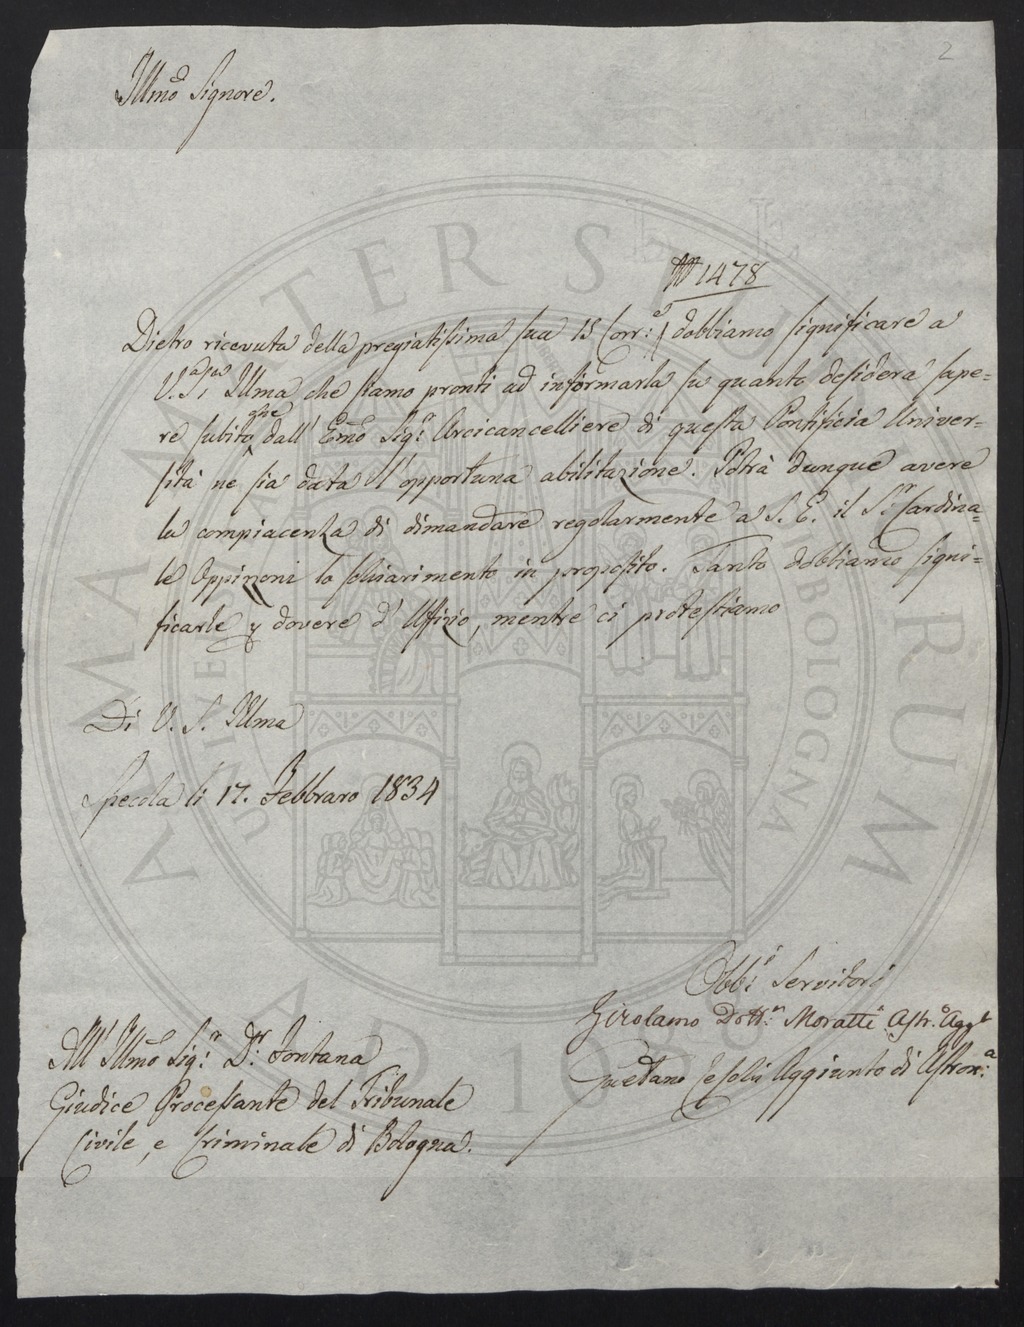 2
Illmo Signore.
N 1478
Dietro ricevuta della pregiatissima sua 15 Corr:e dobbiamo significare a
V. S. Illma che siamo pronti ad informarla su quanto desidera sape=
re subito che dall' Emo Sigr Arcicancelliere di questa Pontificia Univer=
sità ne sia data l'opportuna abilitazione. Potrà dunque avere
la compiacenza di dimandare regolarmente a S. E. il Sr Cardina=
le Oppizzoni lo schiarimento in proposito. Tanto dobbiamo signi=
ficarle p dovere d' Uffizio, mentre ci protestiamo
Di V. S. Illma
Specola li 17. Febbraro 1834
Obbi Servitori
Girolamo Dottr Moratti Astr.o Aggto
Gaetano Ceschi Aggiunto di Astron:a
All' Illmo Sigr Dr Fontana
Giudice Processante del Tribunale
Civile, e Criminale di Bologna.
ALMA MATER STUDIORUM
UNIVERSITÀ DI BOLOGNA
A.D. 1088